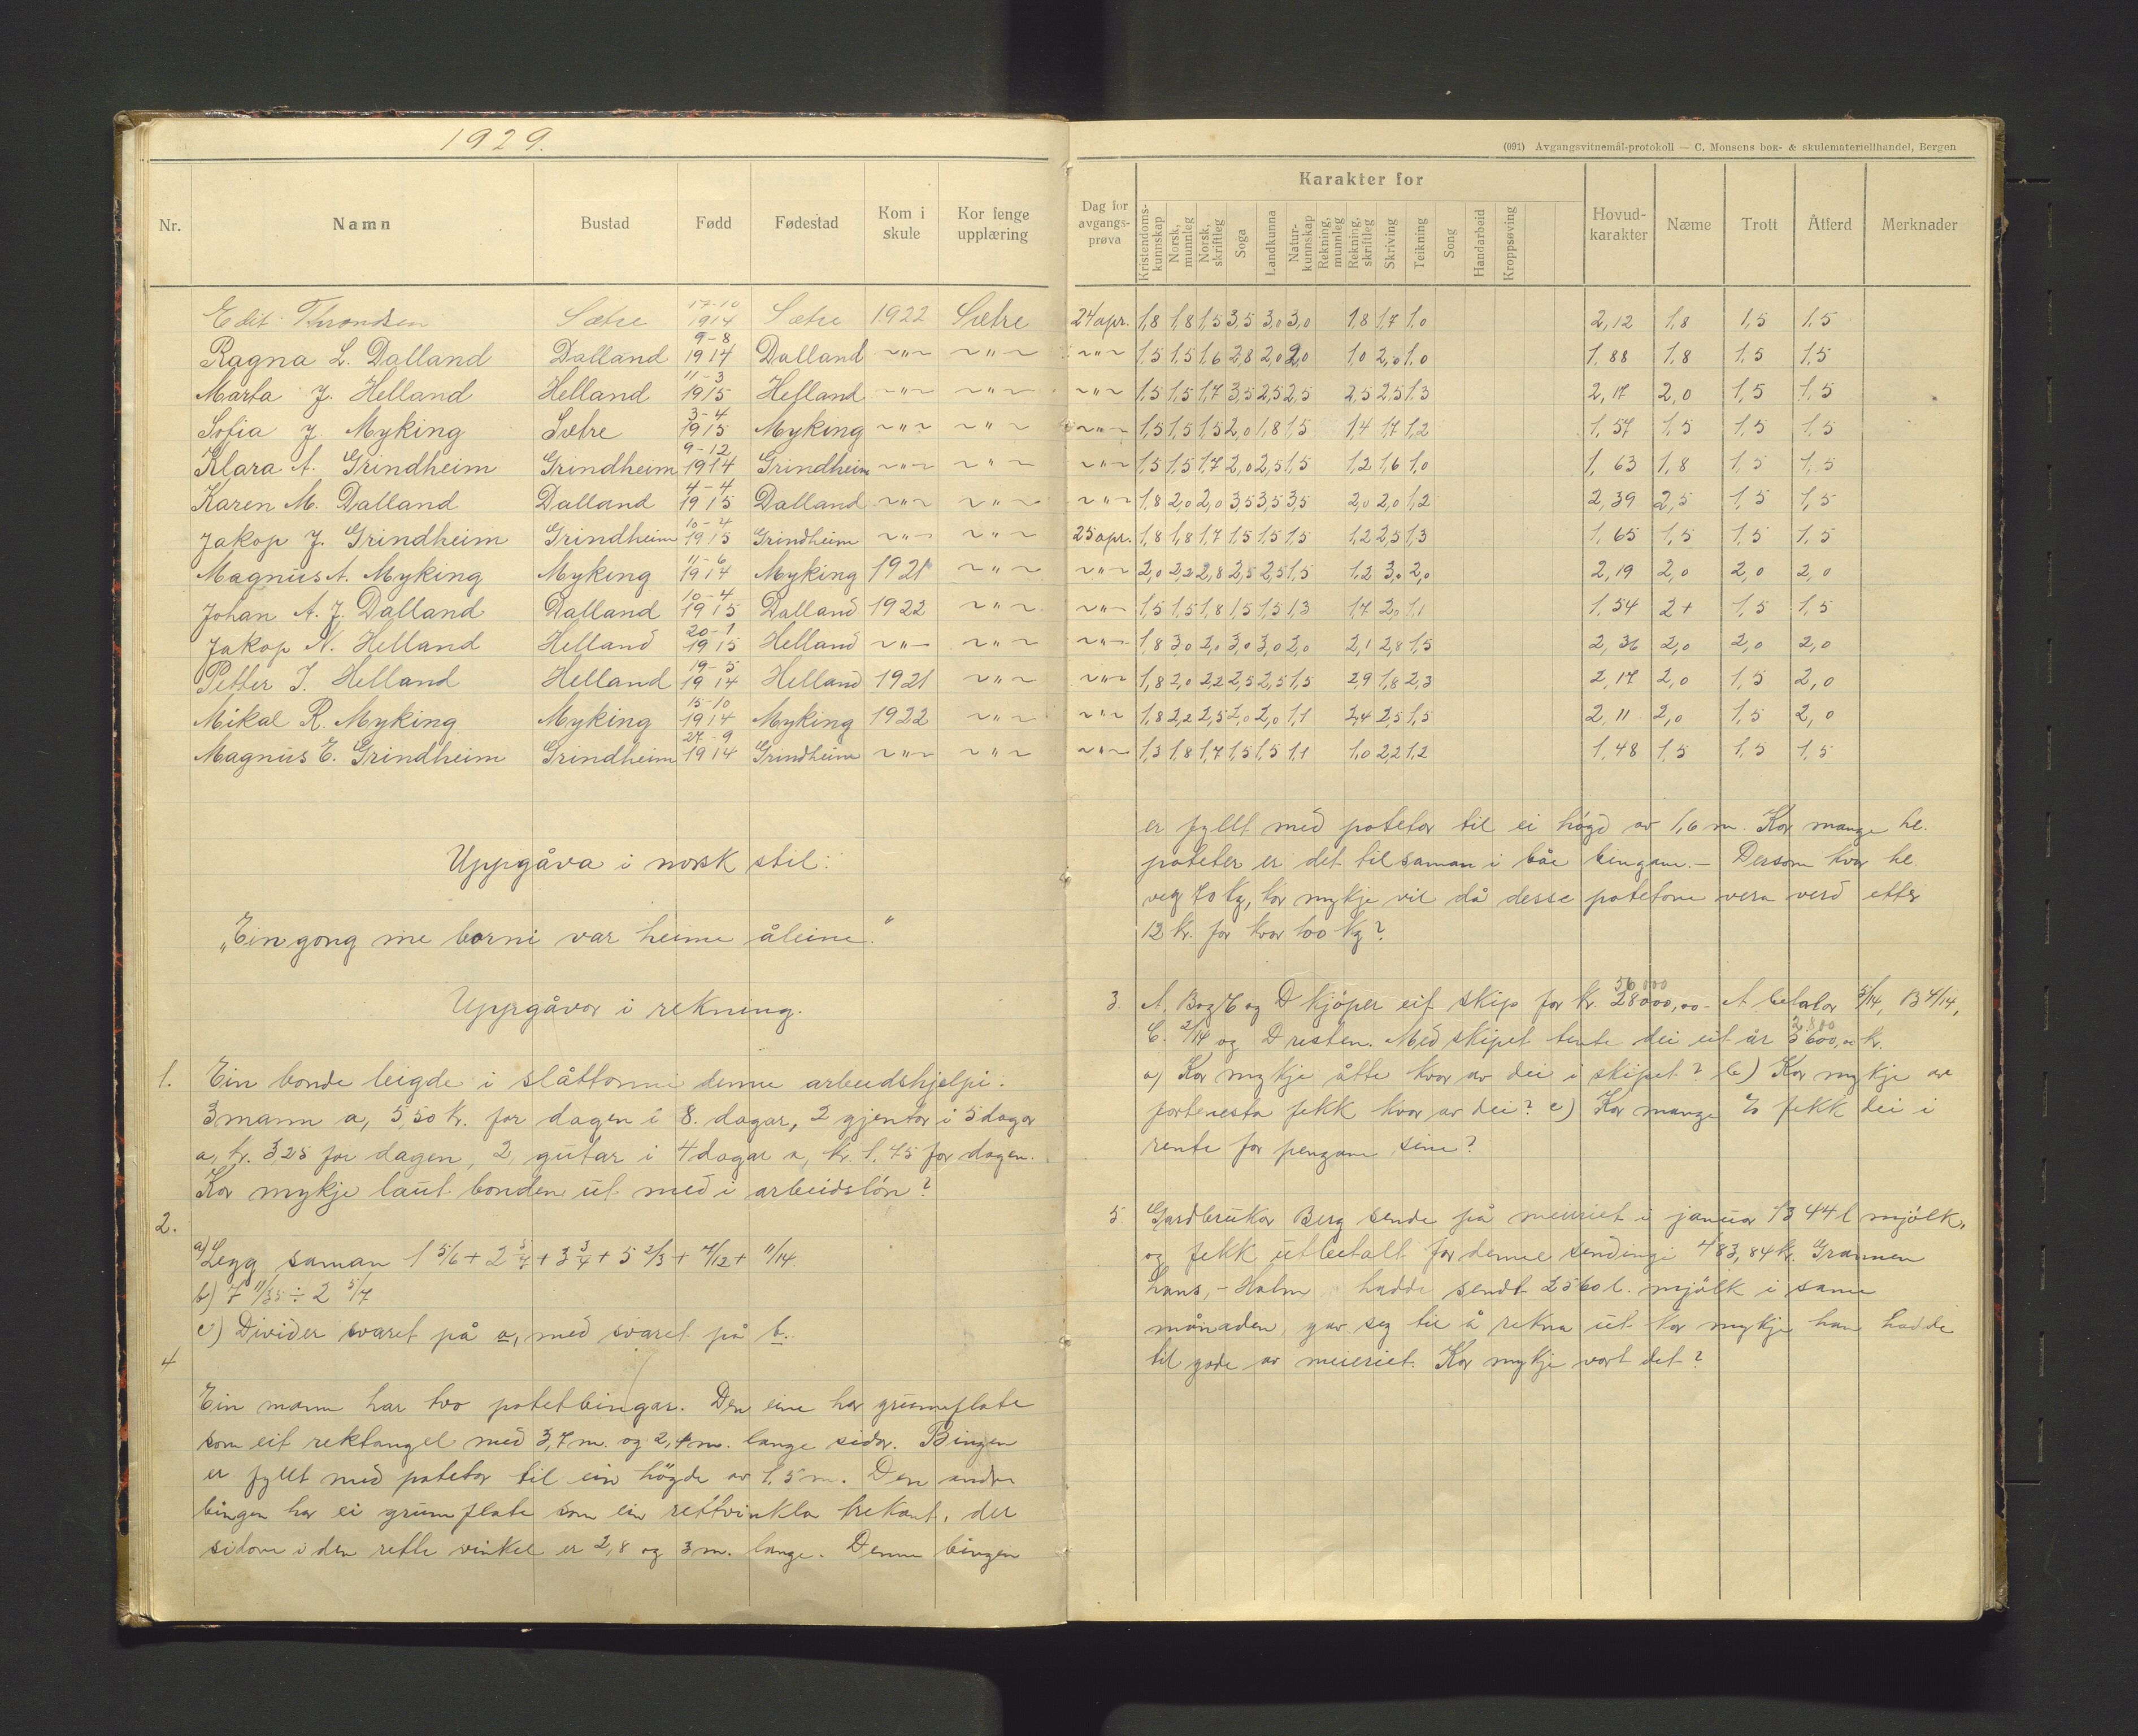 1929.
(091) Avgangsvitnemål-protokoll — C. Monsens bok- & skulemateriellhandel, Bergen
Nr. Namn Bustad Fødd Fødestad Kom i skule Kor fenge upplæring Dag for avgangs-prøva Karakter for Hovud-karakter Næme Trott Åtferd Merknader
Kristendoms-kunnskap Norsk, munnleg Norsk, skriftleg Soga Landkunna Natur-kunnskap Rekning, munnleg Rekning, skriftleg Skriving Teikning Song Handarbeid Kroppsøving
Edit Throndsen Sætre 17-10 1914 Sætre 1922 Sætre 24 apr. 1,8 1,8 1,5 3,5 3,0 3,0 1,8 1,7 1,0 2,12 1,8 1,5 1,5
Ragna L. Dalland Dalland 9-8 1914 Dalland ~"~ ~"~ ~"~ 1,5 1,5 1,6 2,8 2,0 2,0 1,0 2,0 1,0 1,88 1,8 1,5 1,5
Marta J. Helland Helland 11-3 1915 Helland ~"~ ~"~ ~"~ 1,5 1,5 1,7 3,5 2,5 2,5 2,5 2,5 1,3 2,17 2,0 1,5 1,5
Sofia J. Myking Sætre 3-4 1915 Myking ~"~ ~"~ ~"~ 1,5 1,5 1,5 2,0 1,8 1,5 1,4 1,7 1,2 1,57 1,5 1,5 1,5
Klara A. Grindheim Grindheim 9-12 1914 Grindheim ~"~ ~"~ ~"~ 1,5 1,5 1,7 2,0 2,5 1,5 1,2 1,6 1,0 1,63 1,8 1,5 1,5
Karen M. Dalland Dalland 4-4 1915 Dalland ~"~ ~"~ ~"~ 1,8 2,0 2,0 3,5 3,5 3,5 2,0 2,0 1,2 2,39 2,5 1,5 1,5
Jakop J. Grindheim Grindheim 10-4 1915 Grindheim ~"~ ~"~ 25 apr. 1,8 1,8 1,7 1,5 1,5 1,5 1,2 2,5 1,3 1,65 1,5 1,5 1,5
Magnus A. Myking Myking 11-6 1914 Myking 1921 ~"~ ~"~ 2,0 2,2 2,8 2,5 2,5 1,5 1,2 3,0 2,0 2,19 2,0 2,0 2,0
Johan A. J. Dalland Dalland 10-4 1915 Dalland 1922 ~"~ ~"~ 1,5 1,5 1,8 1,5 1,5 1,3 1,7 2,0 1,1 1,54 2+ 1,5 1,5
Jakop N. Helland Helland 20-1 1915 Helland ~"~ ~"~ ~"~ 1,8 3,0 2,0 3,0 3,0 2,0 2,1 2,8 1,5 2,36 2,0 2,0 2,0
Petter I. Helland Helland 19-5 1914 Helland 1921 ~"~ ~"~ 1,8 2,0 2,2 2,5 2,5 1,5 2,9 1,8 2,3 2,17 2,0 1,5 2,0
Mikal R. Myking Myking 15-10 1914 Myking 1922 ~"~ ~"~ 1,8 2,2 2,5 2,0 2,0 1,1 2,4 2,5 1,5 2,11 2,0 1,5 2,0
Magnus E. Grindheim Grindheim 27-9 1914 Grindheim ~"~ ~"~ ~"~ 1,3 1,8 1,7 1,5 1,5 1,1 1,0 2,2 1,2 1,48 1,5 1,5 1,5
Uppgåva i norsk stil:
„Ein gong me borni var heime åleine."
Uppgåvor i rekning.
1. Ein bonde leigde i slåttonni denne arbeidshjelpi:
3 mann a, 5,50 kr. for dagen i 8. dagar, 2 gjentor i 5 dagar
a, kr. 3,25 for dagen, 2, gutar i 4 dagar a, kr. 1.45 for dagen.
Kor mykje laut bonden ut med i arbeidsløn?
2.
a) Legg saman 1 5/6 + 2 5/7 + 3 3/4 + 5 2/3 + 7/12 + 11/14.
b) 7 11/35 ÷ 2 5/7
c) Divider svaret på a, med svaret på b.
4
Ein mann har tvo potetbingar. Den eine har grunnflate
som eit rektangel med 3,7 m. og 2,4 m. lange sidor. Bingen
er fyllt med potetor til ein högde av 1,5 m. Den andre
bingen har ei grunnflate som ein rettvinkla trekant, der
sidone i den rette vinkel er 2,8 og 3 m. lange. Denne bingen
er fyllt med potetor til ei högd av 1,6 m. Kor mange hl.
poteter er det tilsaman i båe bingane. – Dersom kvar hl.
veg 70 kg, kor mykje vil då desse potetone vera verd etter
12 kr. for kvar 100 kg?
3. A, B og C og D kjöper eit skip for kr. 28000,00 56000 – A betalar 5/14, B 4/14,
C. 2/14 og D resten. Med skipet tente dei eit år 5600,00 2.800 kr.
a) Kor mykje åtte kvar av dei i skipet? b) Kor mykje av
fortenesta fekk kvar av dei? c) Kor mange % fekk dei i
rente for pengane sine?
5 Gardbrukar Berg sende på meieriet i januar 1344 l mjölk,
og fekk utbetalt for denne sendingi 483,84 kr. Grannen
hans, – Holm hadde sendt 2560 l. mjölk i same
månaden, gav seg til å rekna ut kor mykje han hadde
til gode av meieriet. Kor mykje vart det?